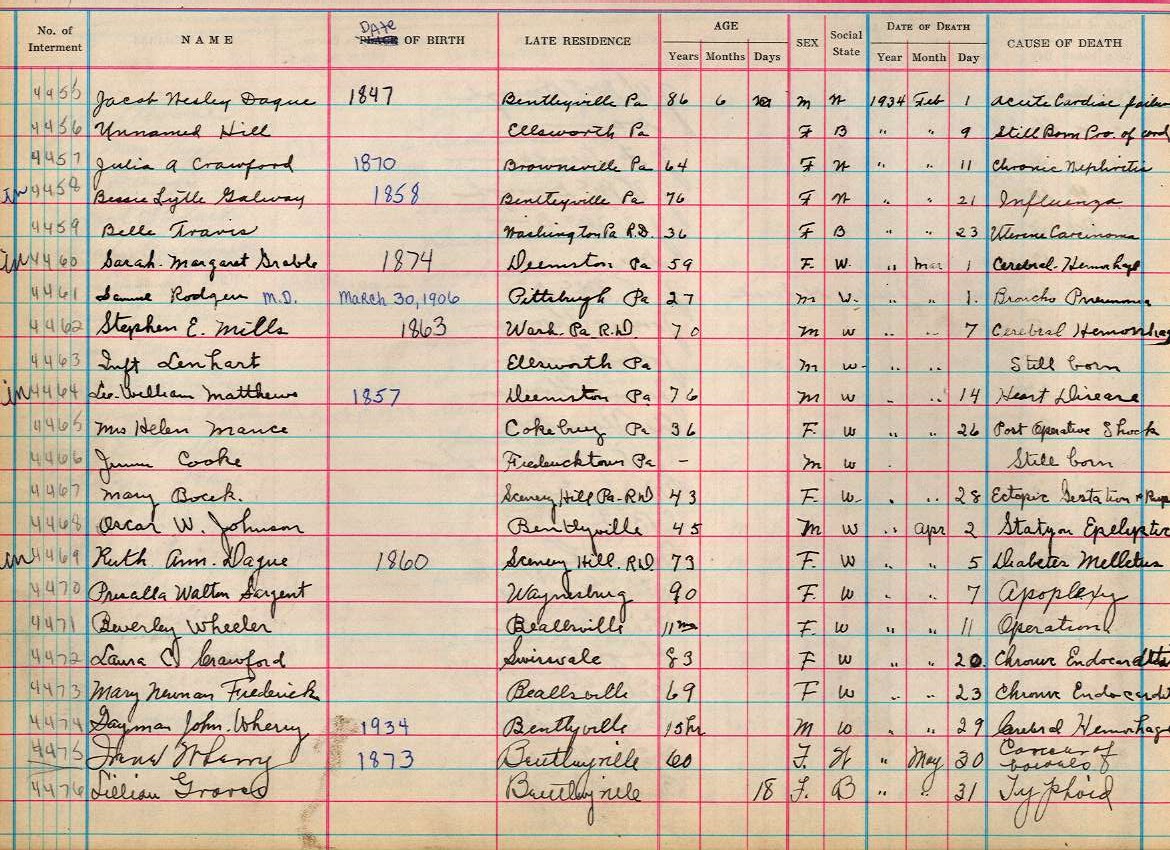 No. of Interment NAME DATE PLACE OF BIRTH LATE RESIDENCE AGE Years Months Days SEX Social State DATE OF DEATH Year Month Day CAUSE OF DEATH
4455 Jacob Wesley Dague 1847 Bentleyville Pa 86 6 M W 1934 Feb 1 Acute Cardiac failu
4456 Unnamed Hill Ellsworth Pa F B " " 9 Still Born Pro. of cord
4457 Julia A Crawford 1870 Brownsville Pa 64 F W " " 11 Chronic Nephritis
in 4458 Bessie Lytle Galway 1858 Bentleyville Pa 76 F W " " 21 Influenza
4459 Belle Travis Washington Pa R.D. 36 F B " " 23 Uterine Carcinoma
in 4460 Sarah Margaret Grable 1874 Deemston Pa 59 F. W. " Mar 1 Cerebral Hemorhage
4461 Rodgers M.D. March 30, 1906 Pittsburgh Pa 27 M W. " " 1. Broncho Pneumonia
4462 Stephen E. Mills 1863 Wash. Pa. R.D. 70 M W " " 7 Cerebral Hemorrhag
4463 Inft Lenhart Ellsworth Pa M W " " Still born
in 4464 Leo William Matthews 1857 Deemston Pa 76 M W " " 14 Heart Disease
4465 Mrs Helen Mance Cokeburg Pa 36 F. W " " 26 Post Operative Shock
4466 Cooke Fredericktown Pa - M W . Still born
4467 Mary Bocek. Scenery Hill Pa-R.D 43 F. W. " " 28 Ectopic Gestation & Rup
4468 Oscar W. Johnson Bentlyville 45 M W " Apr 2 Epelyptic
in 4469 Ruth Ann. Dague 1860 Scenery Hill. R.D. 73 F. W " " 5 Diabetes Melletus
4470 Priscalla Walton Sargent Waynesburg 90 F. W " " 7 Apoplexy
4471 Beverley Wheeler Beallsville 11 mo F. W " " 11 Operation
4472 Laura C Crawford Swissvale 83 F W " " 20. Chronic Endocarditis
4473 Mary Newman Frederick Beallsville 69 F W " " 23 Chronic Endocardit
4474 Gayman John. Wherry 1934 Bentlyville 15 hr M W " " 29 Cerebral Hemorhage
4475 Wherry 1873 Bentleyville 60 F. W " May 30 Cancer of
4476 Lillian Graves Bentleyville 18 F. B " " 31 Typhoid